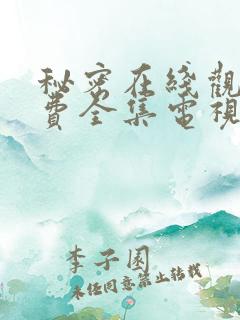 秘密在綫觀
費全集電視
李子園
未經同意禁止轉載